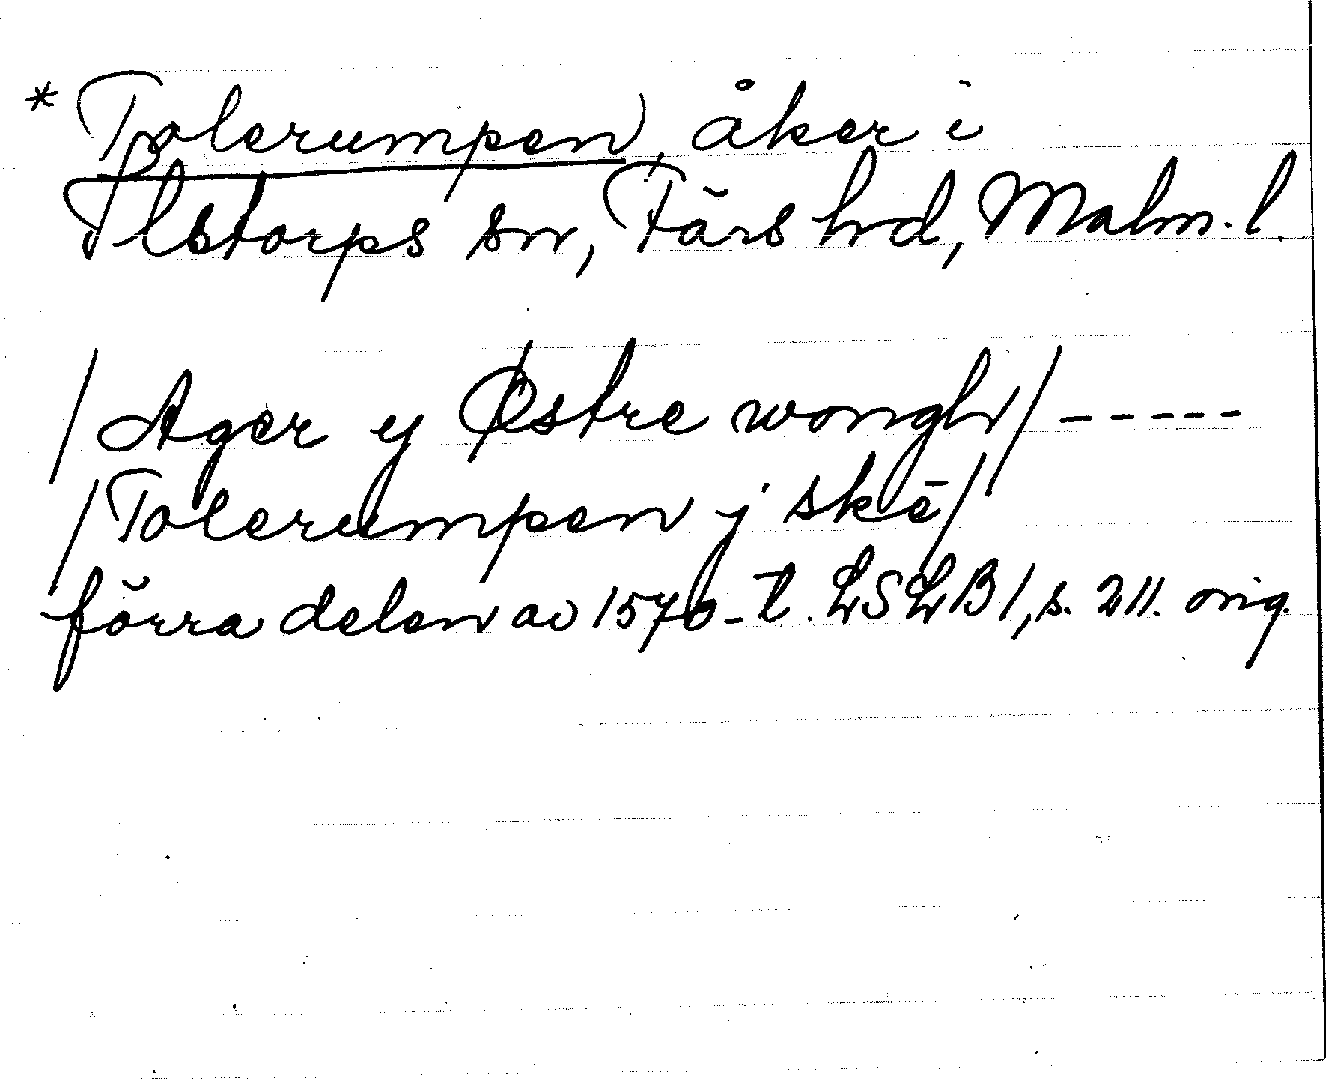 * Tolerumpen, åker i
Ilstorps sn, Färs hd, Malm. l.
/Ager y Østre wongh/-----
/Tolerumpen j skē/
förra delen av 1570-t. LSLB 1, s. 211. orig.